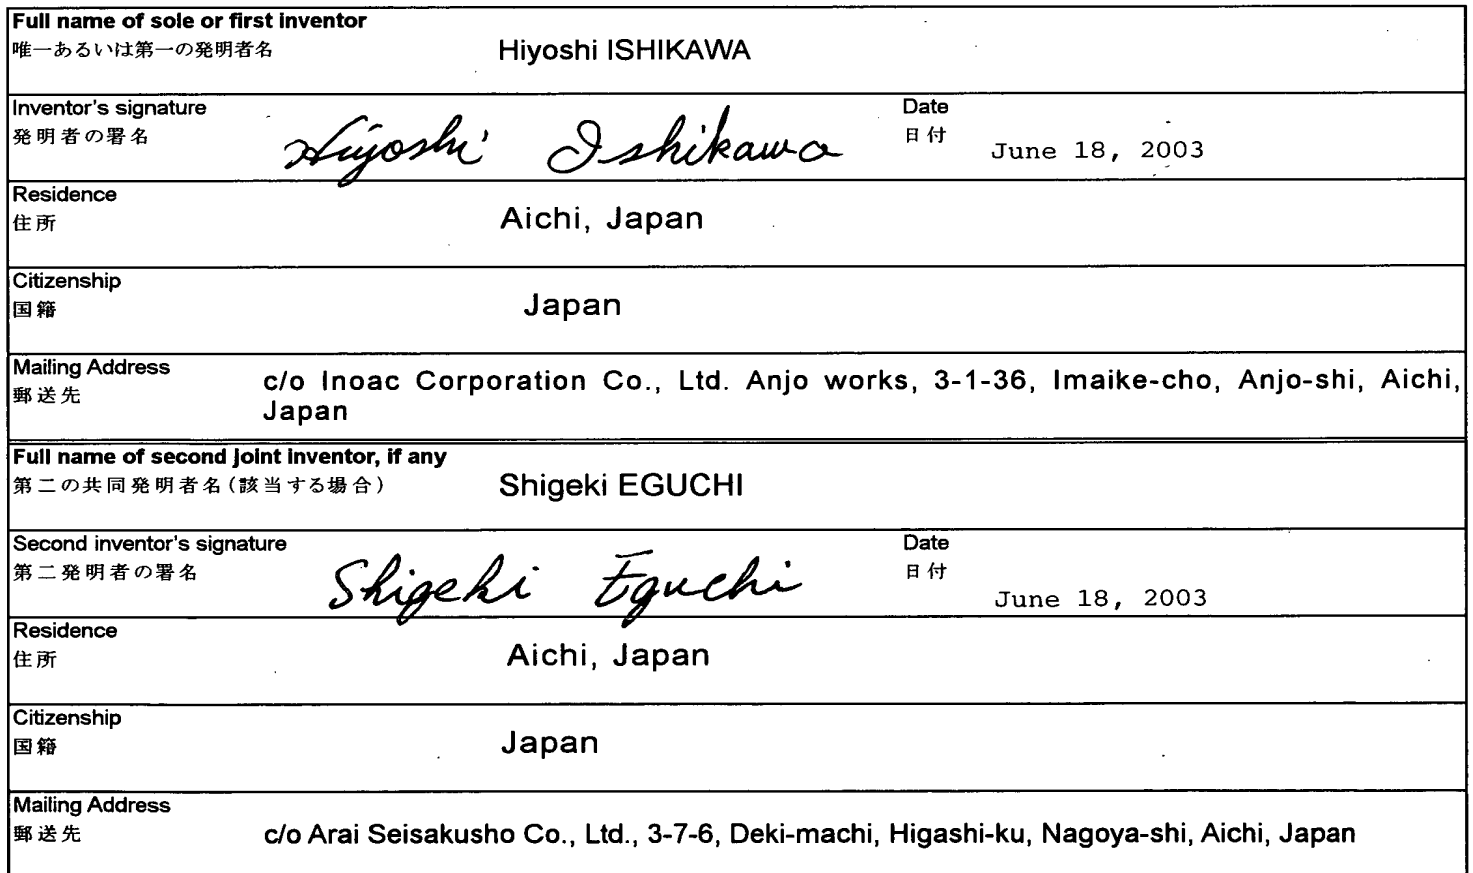 Full name of sole or first inventor
唯一あるいは第一の発明者名 Hiyoshi ISHIKAWA
Inventor's signature Date
発明者の署名 Hiyoshi Ishikawa 日付 June 18, 2003
Residence
住所 Aichi, Japan
Citizenship
国籍 Japan
Mailing Address
郵送先 c/o Inoac Corporation Co., Ltd. Anjo works, 3-1-36, Imaike-cho, Anjo-shi, Aichi,
Japan
Full name of second joint inventor, if any
第二の共同発明者名(該当する場合) Shigeki EGUCHI
Second inventor's signature Date
第二発明者の署名 Shigeki Eguchi 日付
June 18, 2003
Residence
住所 Aichi, Japan
Citizenship
国籍 Japan
Mailing Address
郵送先 c/o Arai Seisakusho Co., Ltd., 3-7-6, Deki-machi, Higashi-ku, Nagoya-shi, Aichi, Japan